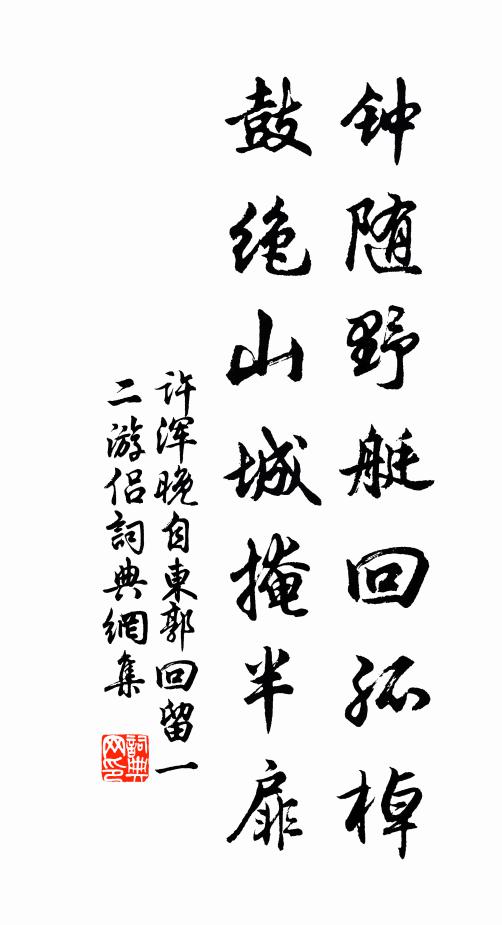 钟随野艇回孤棹
鼓绝山城掩半扉
许浑晚自东郭回留一
二游侣詞典網集
詞典
网印